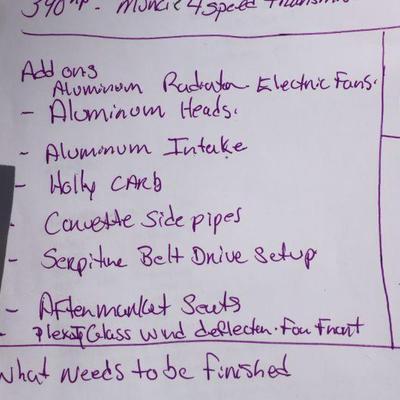 390 HP - Muncie 4 Speed Transmi
Add ons
Aluminum Radiator Electric Fans.
- Aluminum Heads.
- Aluminum Intake
- Holly CARb
- Corvette Side pipes
- Serpitine Belt Drive Setup
- Aftermarket Seats
- Plexi Glass wind deflector. For Front
what needs to be finished